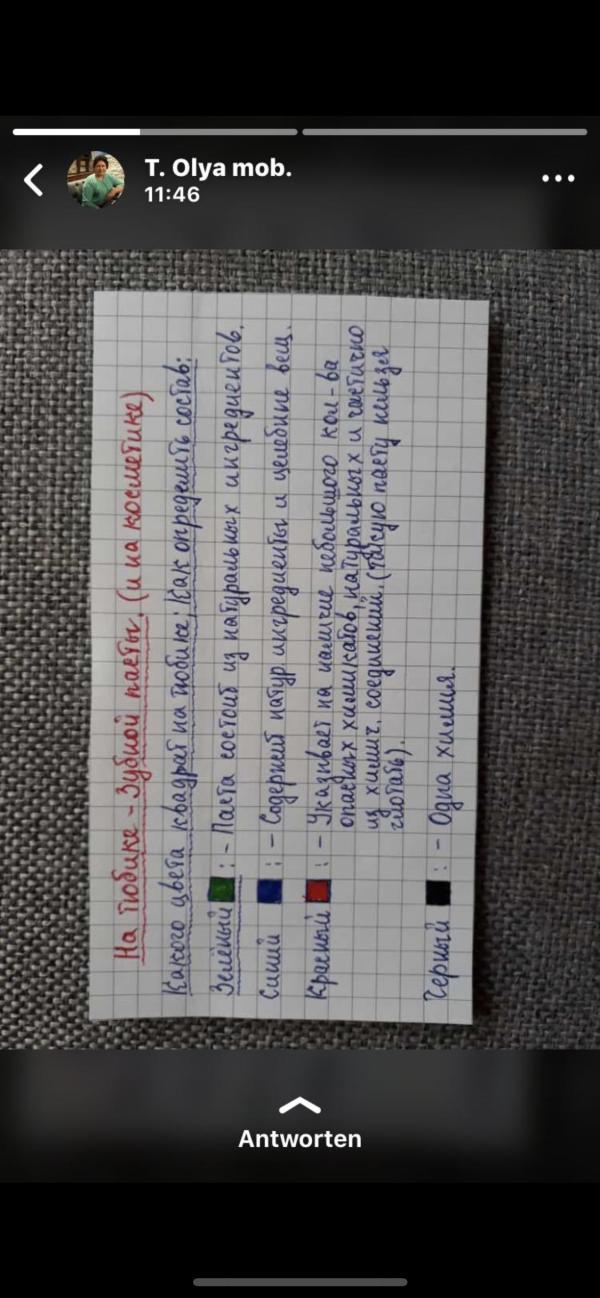 T. Olya mob.
11:46
На тюбике - Зубной пасты. (и на косметике)
Какого цвета квадрат на тюбике: Как определить состав:
Зелёный : - Паста состоит из натуральных ингредиентов.
Синий : - Содержит натур ингредиенты и целебные вещ.
Красный : - Указывает на наличие небольшого кол-ва
опасных химикатов, натуральных и частично
из химич. соединений. (такую пасту нельзя
глотать).
Чёрный : - Одна химия.
Antworten